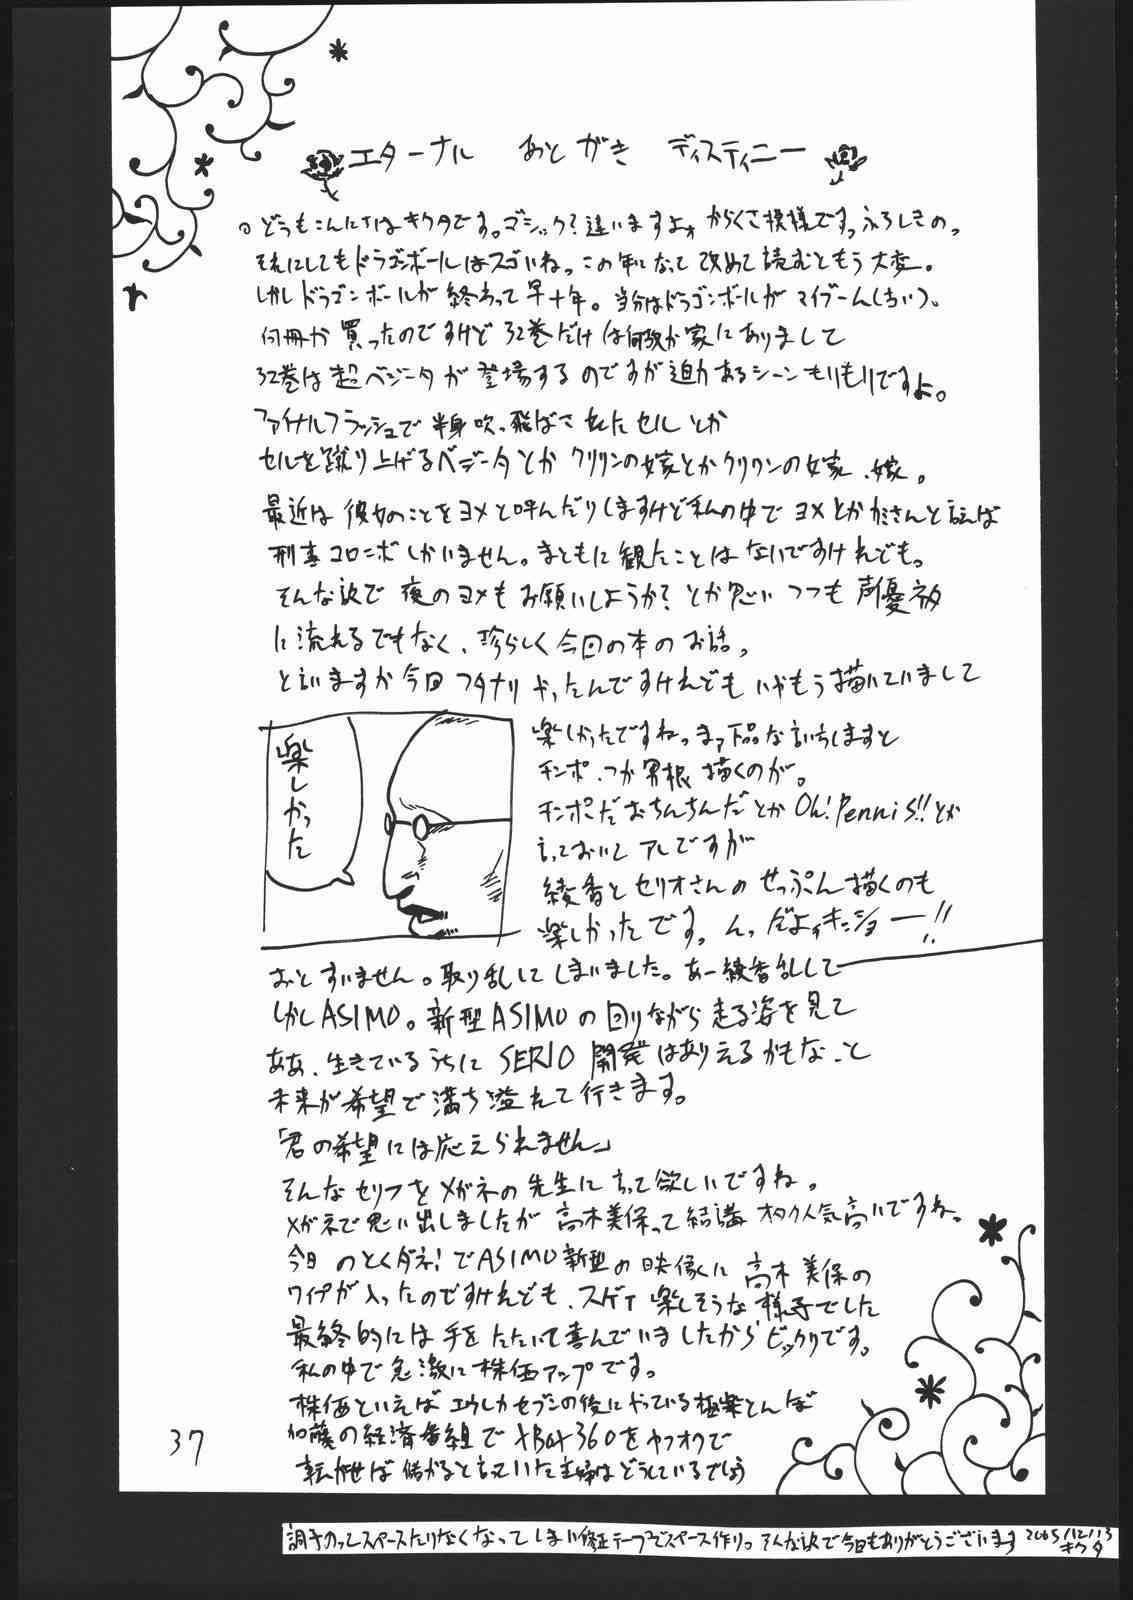 エターナル あとがき ディスティニー
どうもこんにちはキクタです。ゴシック?違いますよォからくさ模様です。ふろしきの。
それにしてもドラゴンボールはスゴいね。この年になって改めて読むともう大変。
しかしドラゴンボールが終わって早十年。当分はドラゴンボールがマイブーム(古い)。
何冊か買ったのですけど32巻だけは何故か家にありまして
32巻は超ベジータが登場するのですが迫力あるシーンもりもりですよ。
ファイナルフラッシュで半身吹っ飛ばされたセルとか
セルを蹴り上げるベジータとかクリリンの嫁とかクリリンの嫁、嫁。
最近は彼女のことをヨメと呼んだりしますけど私の中でヨメとかカミさんと言えば
刑事コロンボしかいません。まともに観たことはないですけれども。
そんな訳で夜のヨメもお願いしようか?とか思いつつも声優ネタ
に流れるでもなく、珍らしく今回の本のお話。
と言いますか今回フタナリやったんですけれどもいやもう描いていまして
楽しかったですね。まァ下品な言いちしますと
チンポ、つか男根描くのが。
チンポだおちんちんだとかOh! Pennis!!とか
言っておいてアレですが
綾香とセリオさんのせっぷん描くのも
楽しかったです。んっだよォキッショー!!
楽しかった
おっとすいません。取り乱してしまいました。あー綾香乱して
しかしASIMO。新型ASIMOの回りながら走る姿を見て
ああ、生きているうちにSERIO開発はありえるかもなっと
未来が希望で満ち溢れて行きます。
「君の希望には応えられません」
そんなセリフをメガネの先生に言って欲しいですね。
メガネで思い出しましたが高木美保って結構オタク人気高いですね。
今日のとくダネ!でASIMO新型の映像に高木美保の
ワイプが入ったのですけれども、スゲェ楽しそうな様子でした
最終的には手をたたいて喜んでいましたからビックリです。
私の中で急激に株価アップです。
株価といえばエウレカセブンの後にやっている極楽とんぼ
加藤の経済番組でXBOX360をヤフオクで
転がせば儲かると言っていた主婦はどうしているでしょう
37
調子のってスペースたりなくなってしまい修正テープでスペース作り。そんな訳で今日もありがとうございます 2005/12/13
キクタ